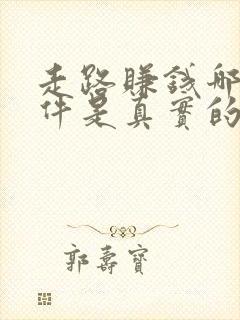 走路賺錢哪
件是真實的
郭壽寶